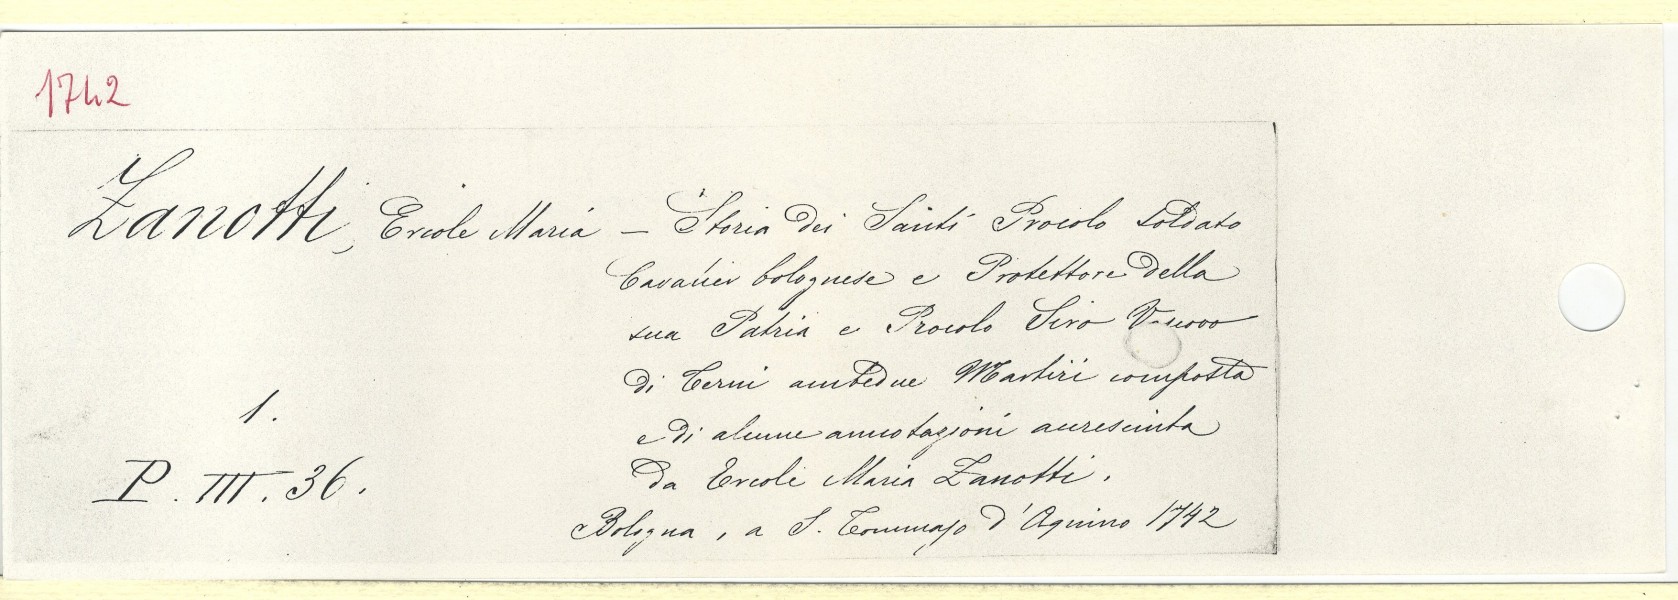 1742
Zanotti, Ercole Maria — Storia dei Santi Procolo soldato
Cavalier bolognese e Protettore della
sua Patria e Procolo Siro Vescovo
di Terni ambedue Martiri composta
e di alcune annotazioni accresciuta
1.
da Ercole Maria Zanotti.
P. III. 36.
Bologna, a S. Tommaso d'Aquino 1742